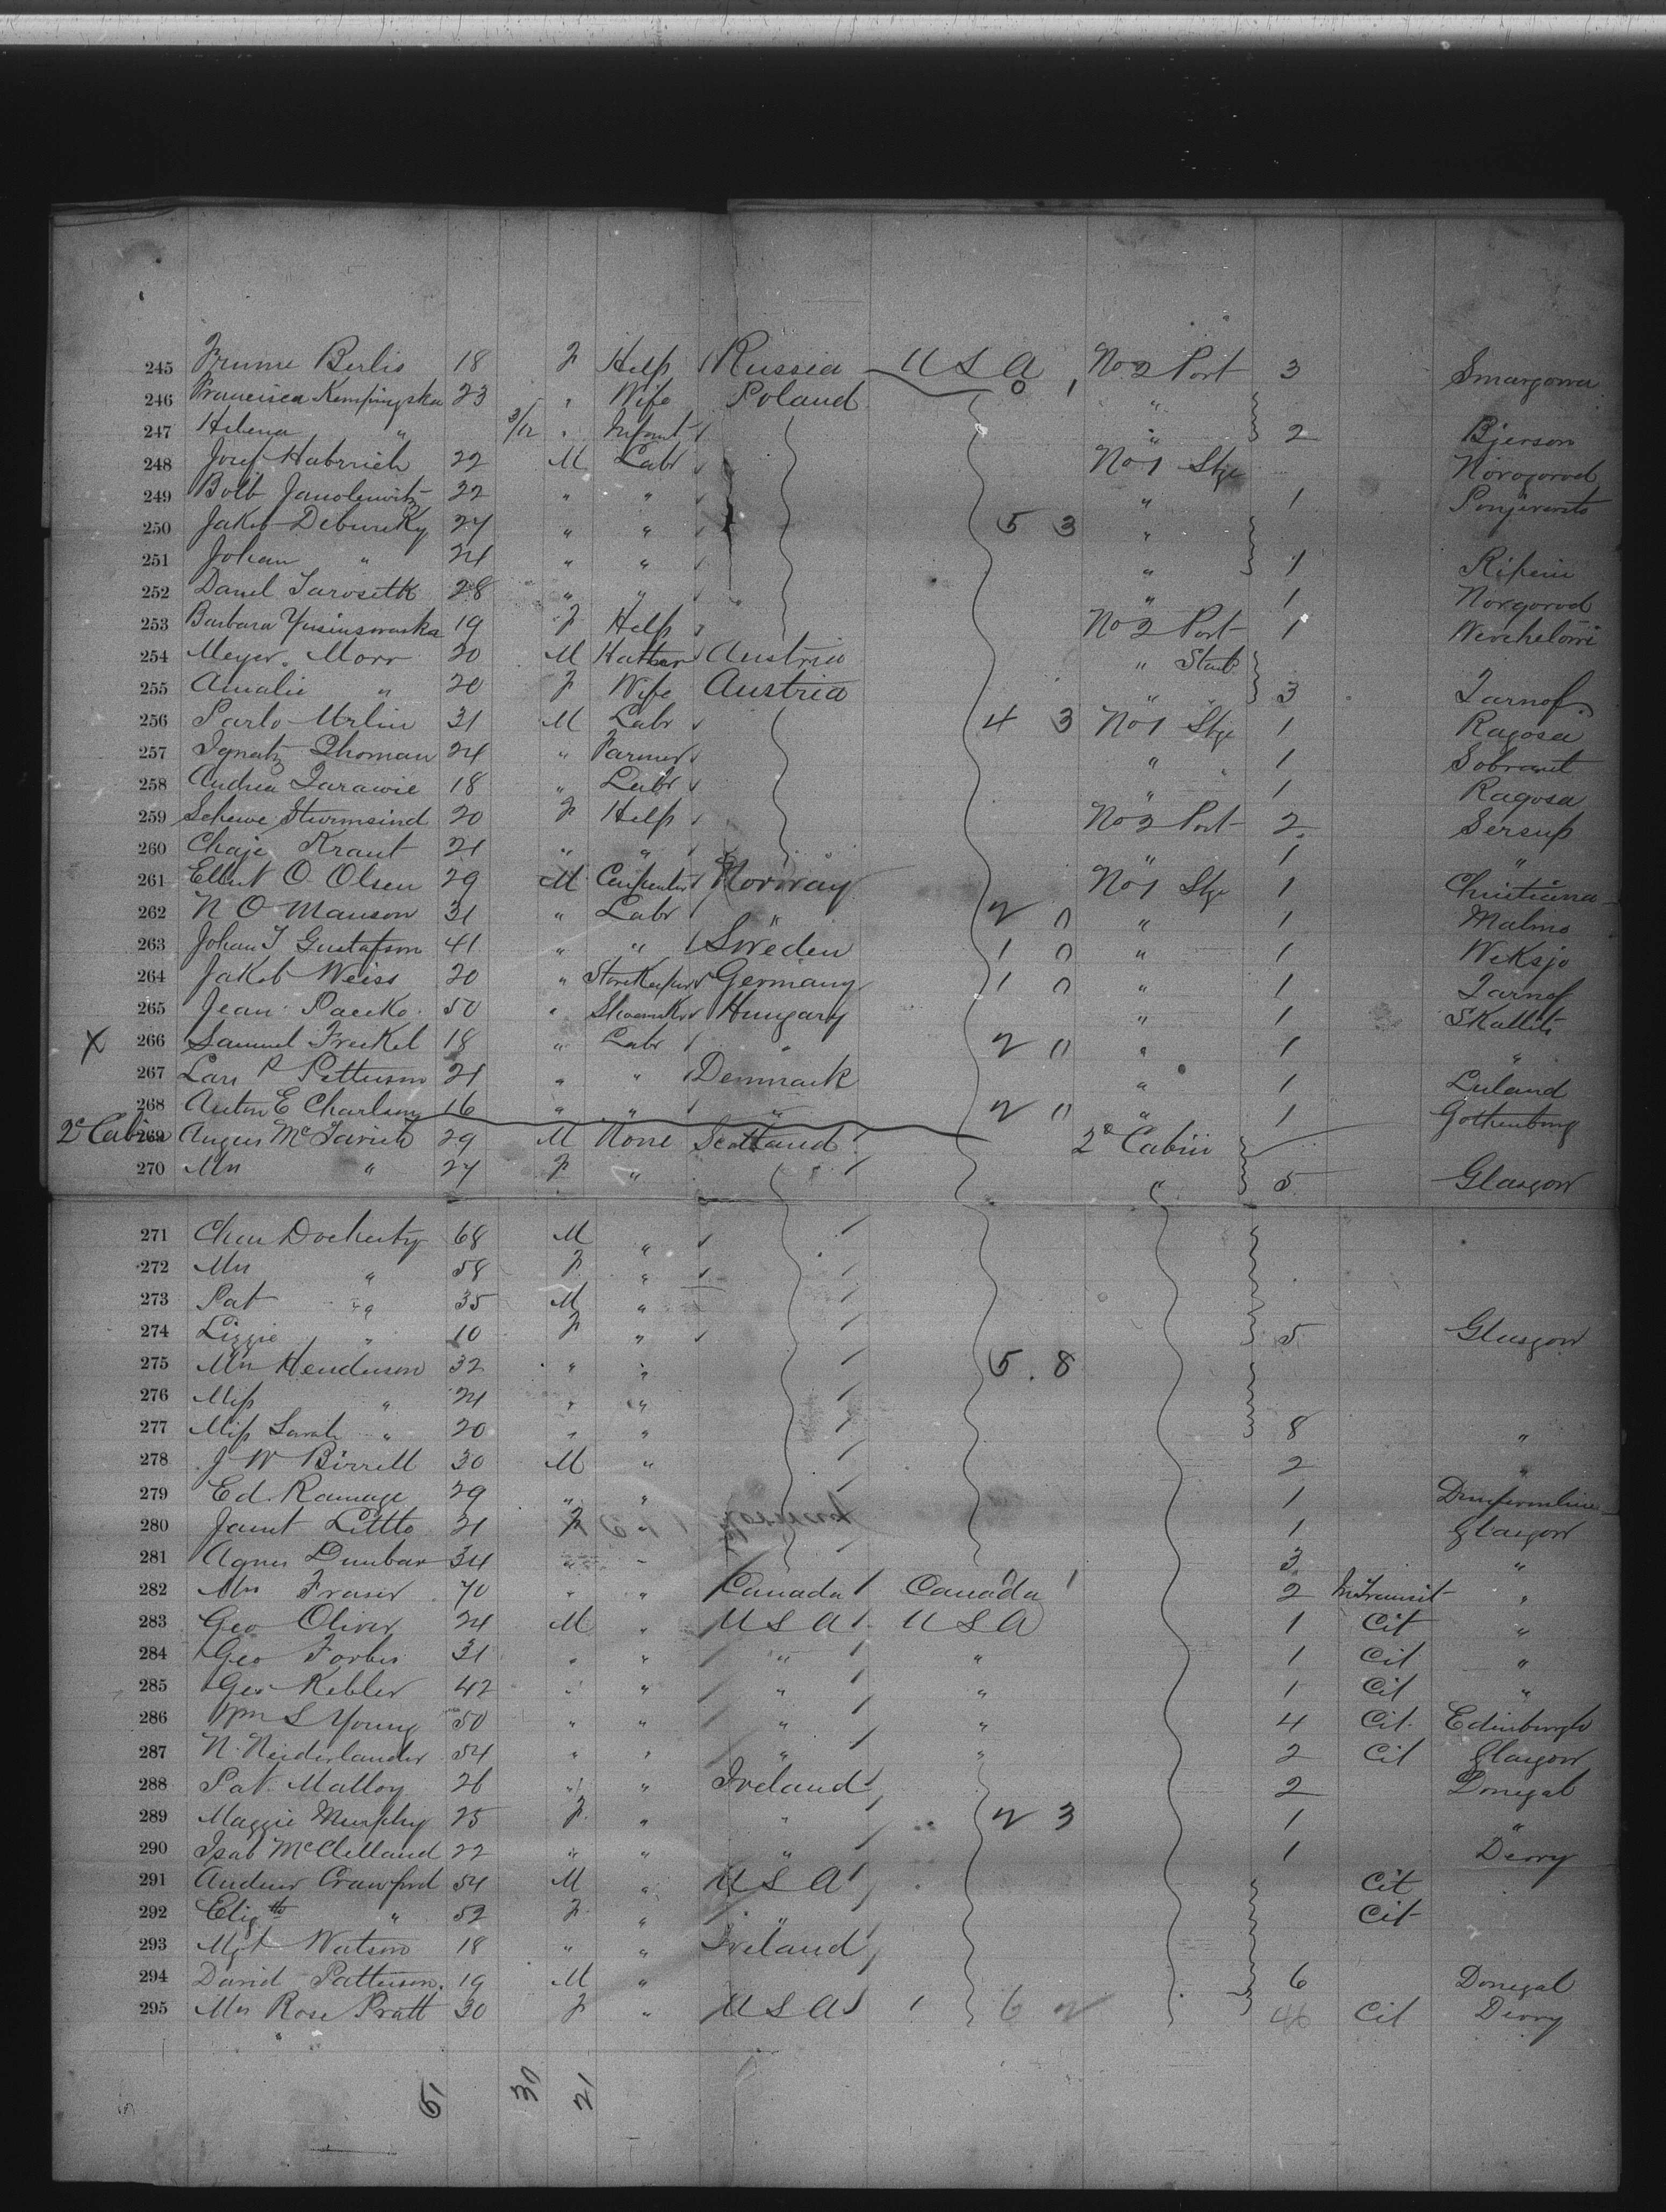 245 Frume Berlis 18 F Help Russia U S A No 2 Port 3 Smargowa
246 Francisca Kempingska 23 " Wife Poland "
247 Helena " 3/12 " Infant " 2 Bjerson
248 Josef Habrrich 22 M Labr No 1 Stge Novogorod
249 Bolb Janolewitz 22 " " " 1
250 Jakob Debursky 24 " " 5 3 "
251 Johan " 24 " " " 1 Ripein
252 Danel Tarosetk 28 " " " 1 Norgorod
253 Barbara 19 F Help No 2 Port 1
254 Meyer Morr 20 M Hatter Austria " Starb
255 Amalie " 20 F Wife Austria " " 3 Tarnof
256 Parlo Urlin 31 M Labr 4 3 No 1 Stge 1 Ragosa
257 Ignatz Thoman 24 " Farmer " 1
258 Andrea Tarawie 18 " Labr " 1 Ragosa
259 Schewe Sturmsind 20 F Help No 2 Port 2 Sersup
260 Chaje Kraut 21 " " " 1 "
261 Elbert O Olsen 29 M Carpenter Norway No 1 Stge 1 Christiana
262 N O Manson 31 " Labr " 2 0 " 1 Malmo
263 Johan T Gustafson 41 " " Sweden 1 0 " 1 Weksjo
264 Jakob Weiss 20 " StoreKeeper Germany 1 0 " 1 Tarnof
265 Jean Paceko 50 " Shoemkr Hungary " 1
X 266 Samuel Freckel 18 " Labr " 2 0 " 1 "
267 Lars P Petterson 21 " " Denmark " 1
268 Anton E Charlson 16 " " " 2 0 " 1 Gothenburg
2e Cabin 269 Angus McTavish 29 M None Scotland 2e Cabin
270 Mrs " 27 F " " 5 Glasgow
271 Chas Docherty 68 M "
272 Mrs " 58 F "
273 Pat " 35 M "
274 Lizzie " 10 F " 5 Glasgow
275 Mrs Henderson 32 " " 5 . 8
276 Miss " 24 " "
277 Miss Sarah " 20 " " 8 "
278 J W Birrell 30 M " 2 "
279 Ed. Ramage 29 " " 1 Dunfermline
280 Janet Little 21 F " 1 Glasgow
281 Agnes Dunbar 34 " " 3 "
282 Mrs Fraser 70 " " Canada Canada 2 In Transit "
283 Geo Oliver 24 M " U S A U S A 1 Cit "
284 Geo Forbes 31 " " " " 1 Cit "
285 Geo Kebler 42 " " " " 1 Cit "
286 Wm S Young 50 " " " " 4 Cit. Edinburgh
287 N. Neiderlander 54 " " " " 2 Cit Glasgow
288 Pat. Malloy 26 " " Ireland 2 Donegal
289 Maggie Murphy 25 F " " 2 3 1 "
290 Isab McClelland 22 " " " 1 Derry
291 Andrew Crawford 54 M " U S A Cit
292 Elizth " 52 F " " Cit
293 Mgt Watson 18 " " Ireland
294 David Patterson 19 M " 6 Donegal
295 Mrs Rose Pratt 30 F " U S A 6 2 46 Cit Derry
51 30 21